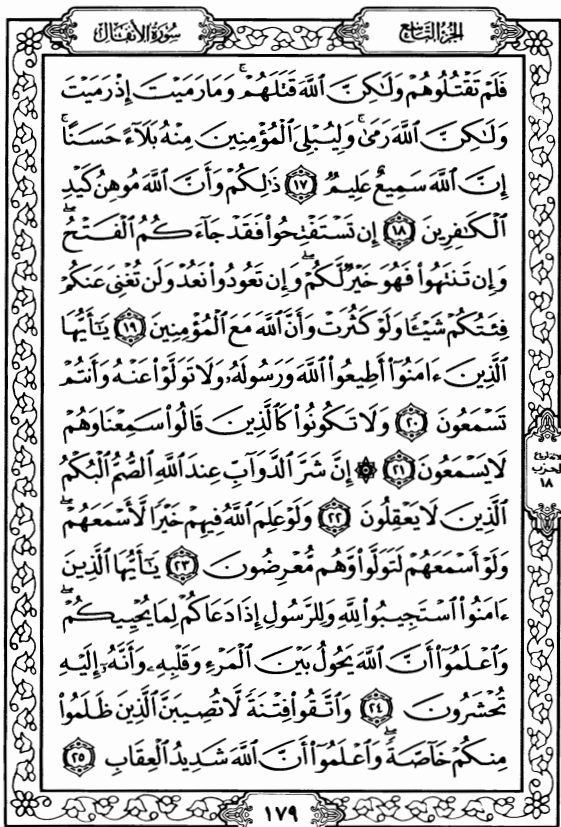 سُورَةُ الأَنفَالِ
الجُزْءُ التَّاسِعُ
فَلَمْ تَقْتُلُوهُمْ وَلَٰكِنَّ اللَّهَ قَتَلَهُمْ ۚ وَمَا رَمَيْتَ إِذْ رَمَيْتَ
وَلَٰكِنَّ اللَّهَ رَمَىٰ ۚ وَلِيُبْلِيَ الْمُؤْمِنِينَ مِنْهُ بَلَآءً حَسَنًا ۚ
إِنَّ اللَّهَ سَمِيعٌ عَلِيمٌ ١٧ ذَٰلِكُمْ وَأَنَّ اللَّهَ مُوهِنُ كَيْدِ
الْكَٰفِرِينَ ١٨ إِن تَسْتَفْتِحُوا۟ فَقَدْ جَآءَكُمُ الْفَتْحُ ۖ
وَإِن تَنتَهُوا۟ فَهُوَ خَيْرٌ لَّكُمْ ۖ وَإِن تَعُودُوا۟ نَعُدْ وَلَن تُغْنِيَ عَنكُمْ
فِئَتُكُمْ شَيْـًٔا وَلَوْ كَثُرَتْ وَأَنَّ اللَّهَ مَعَ الْمُؤْمِنِينَ ١٩ يَٰٓأَيُّهَا
الَّذِينَ ءَامَنُوٓا۟ أَطِيعُوا۟ اللَّهَ وَرَسُولَهُۥ وَلَا تَوَلَّوْا۟ عَنْهُ وَأَنتُمْ
تَسْمَعُونَ ٢٠ وَلَا تَكُونُوا۟ كَالَّذِينَ قَالُوا۟ سَمِعْنَا وَهُمْ
لَا يَسْمَعُونَ ٢١ ۞ إِنَّ شَرَّ الدَّوَآبِّ عِندَ اللَّهِ الصُّمُّ الْبُكْمُ
الَّذِينَ لَا يَعْقِلُونَ ٢٢ وَلَوْ عَلِمَ اللَّهُ فِيهِمْ خَيْرًا لَّأَسْمَعَهُمْ ۖ
وَلَوْ أَسْمَعَهُمْ لَتَوَلَّوا۟ وَّهُم مُّعْرِضُونَ ٢٣ يَٰٓأَيُّهَا الَّذِينَ
ءَامَنُوا۟ اسْتَجِيبُوا۟ لِلَّهِ وَلِلرَّسُولِ إِذَا دَعَاكُمْ لِمَا يُحْيِيكُمْ ۖ
وَاعْلَمُوٓا۟ أَنَّ اللَّهَ يَحُولُ بَيْنَ الْمَرْءِ وَقَلْبِهِۦ وَأَنَّهُۥٓ إِلَيْهِ
تُحْشَرُونَ ٢٤ وَاتَّقُوا۟ فِتْنَةً لَّا تُصِيبَنَّ الَّذِينَ ظَلَمُوا۟
مِنكُمْ خَآصَّةً ۖ وَاعْلَمُوٓا۟ أَنَّ اللَّهَ شَدِيدُ الْعِقَابِ ٢٥
الحزب
١٨
١٧٩